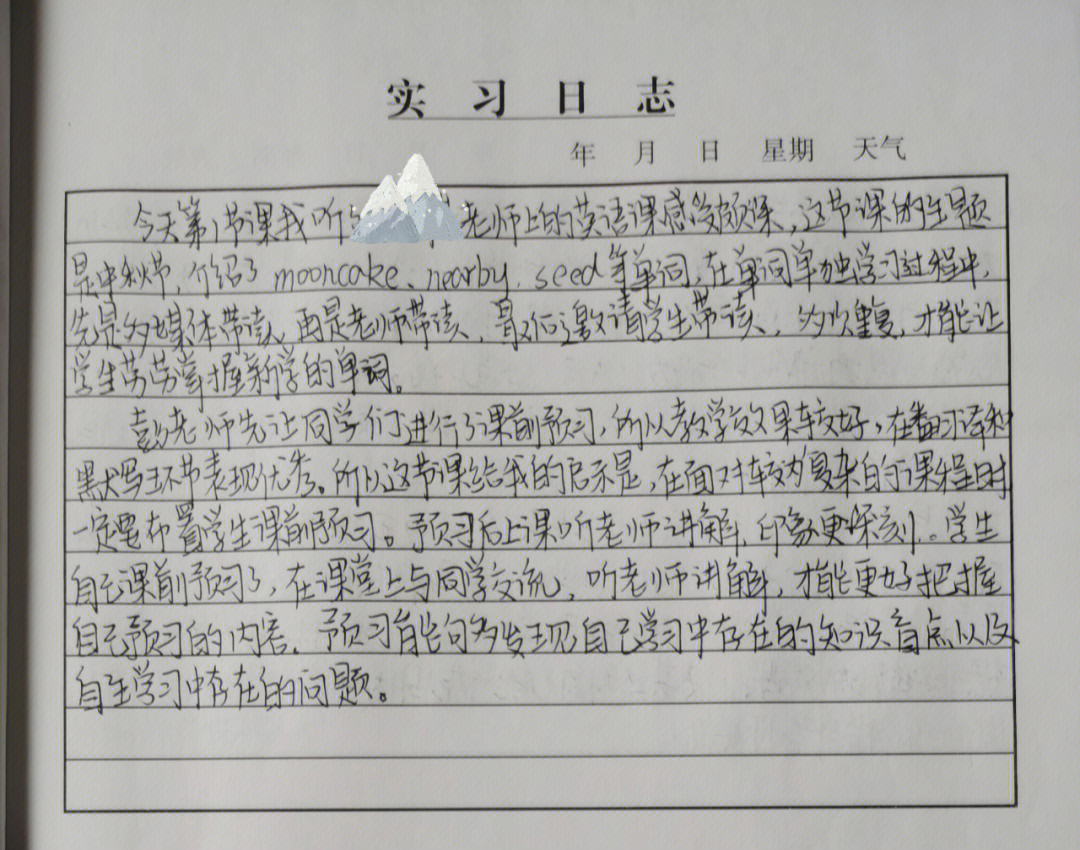 实习日志
年 月 日 星期 天气
今天第1节课我听 老师上的英语课感发颇深，这节课的主题
是中秋节，介绍了mooncake、nearby、seed等单词，在单词单独学习过程中，
先是多媒体带读，再是老师带读，最后邀请学生带读，多次重复，才能让
学生劳劳掌握新学的单词。
彭老师先让同学们进行了课前预习，所以教学效果较好，在翻译和
默写环节表现优秀。所以这节课给我的启示是，在面对较为复杂的课程时
一定要布置学生课前预习。预习后上课听老师讲解，印象更深刻。学生
自己课前预习了，在课堂上与同学交流，听老师讲解，才能更好把握
自己预习的内容。预习能够多发现自己学习中存在的知识盲点以及
自主学习中存在的问题。